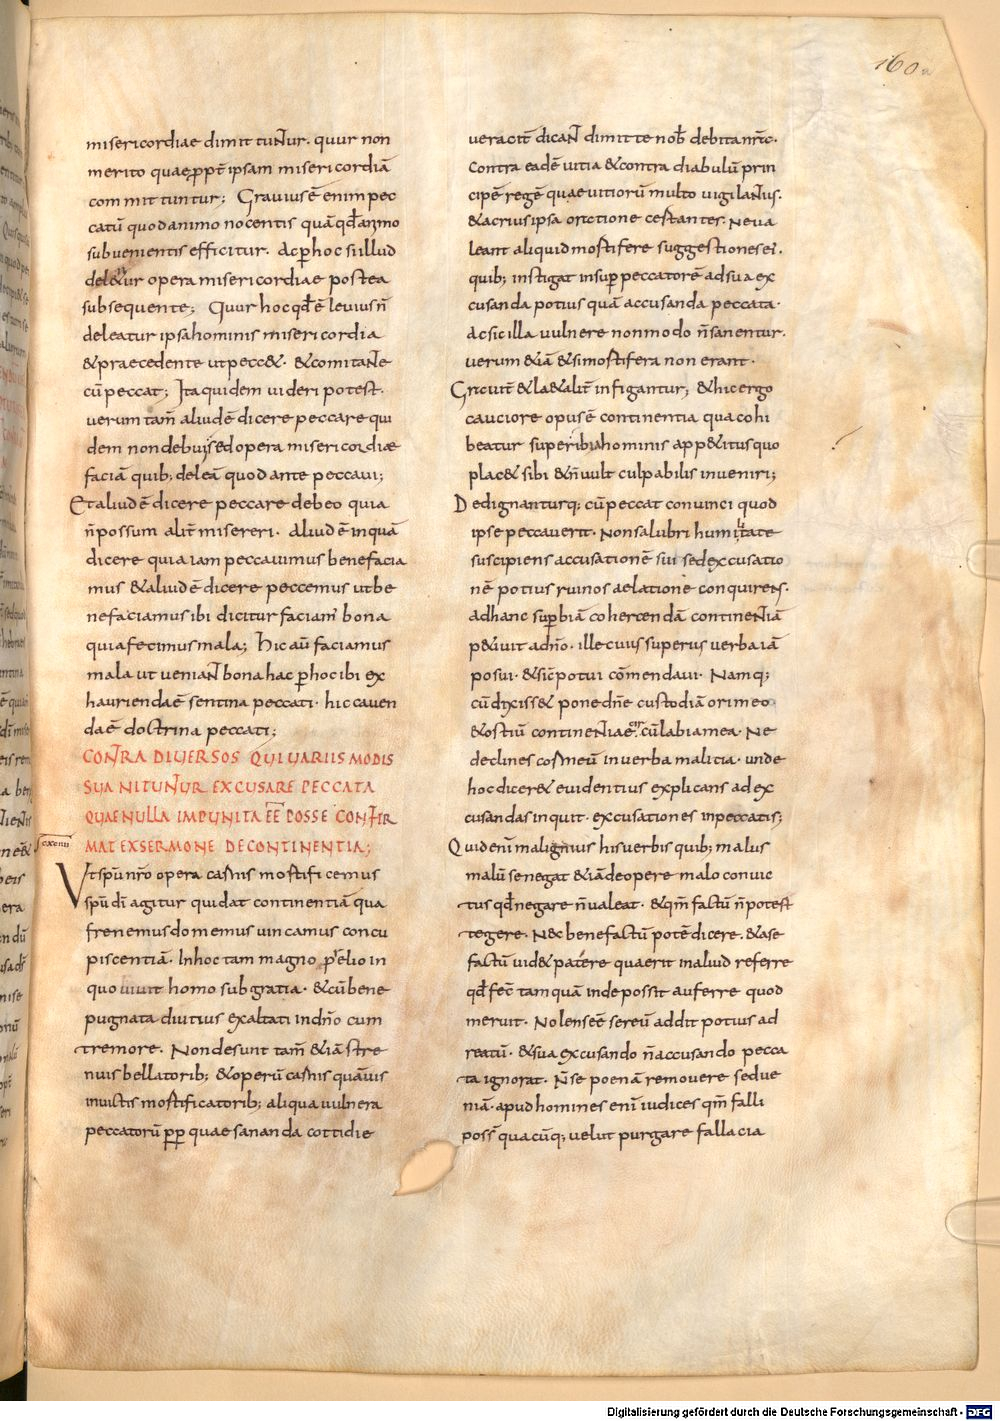 160a
misericordiae dimittuntur. quur non
merito quae ppt̄ ipsam misericordiā
committuntur; Gravius ē enim pec
catū quod animo nocentis quā qd̄ animo
subvenientis efficitur. Ac p̄ hoc si illud
deletur opera misericordiae postea
subsequente; Quur hoc qd̄ ē levius n̄
deleatur ipsa hominis misericordia
& praecedente ut pecc&. & comitante
cū peccat; Ita quidem videri potest.
verum tam̄ aliud ē dicere peccare qui
dem non debui sed opera misericordiae
faciā quib; deleā quod ante peccavi;
Et aliud ē dicere peccare debeo quia
n̄ possum alit̄ misereri. Aliud ē inquā
dicere quia iam peccavimus benefacia
mus & aliud ē dicere peccemus ut be
nefaciamus ibi dicitur faciam̄ bona
quia fecimus mala; Hic aū faciamus
mala ut veniant bona hac p̄ hoc ibi ex
haurienda ē sentina peccati. hic caven
da ē doctrina peccati;
CONTRA DIVERSOS QUI VARIIS MODIS
SUA NITUNTUR EXCUSARE PECCATA
QUAE NULLA IMPUNITA EE̅ POSSE CONFIR
MAT EX SERMONE DE CONTINENTIA;
cxcuii
Ut spū nr̄o opera carnis mortificemus
spū dī agitur qui dat continentiā qua
frenemus domemus vincamus concu
piscentiā. In hoc tam magno p̄lio in
quo vivit homo sub gratia. & cū bene
pugnata diutius exaltati in dn̄o cum
tremore. Non desunt tam̄ & iā stre
nuis bellatorib; & operū carnis quāvis
invictis mortificatorib; aliqua vulnera
peccatorū pp̄ quae sananda cottidie
veracit̄ dicant dimitte nob̄ debita nr̄a.
Contra eadē vitia & contra diabulū prin
cipē regē quae vitiorū multo vigilantius.
& acrius ipsa oratione certantes. Ne va
leant aliquid mortifere suggestiones ei.
quib; instigat insup̄ peccatorē ad sua ex
cusanda potius quā accusanda peccata.
ac sic illa vulnere non modo n̄ sanentur.
verum & iā & si mortifera non erant.
Gravit̄ & la&alit̄ infigantur; & hic ergo
cauciore opus ē continentia qua cohi
beatur superibia hominis app&itus quo
plac& sibi & n̄ vult culpabilis inveniri;
Dedignanturq; cū peccat convinci quod
ipse peccaverit. Non salubri humilitate
suscipiens accusationē sui sed excusatio
nē potius ruinosa elatione conquirens.
ad hanc sup̄biā cohercendā continentiā
p&ivit a dn̄o. ille cuius superius verba iā
posui. & sic̄ potui cōmendavi. Namq;
cū dixiss& pone dn̄e custodiā ori meo
& ostiū continentiae circū labia mea. Ne
declines cor meū in verba malitia. unde
hoc dicer& evidentius explicans ad ex
cusandas inquit. excusationes in peccatis;
Quid enī malignius his verbis quib; malus
malū se negat & iā de opere malo convic
tus qd̄ negare n̄ valeat. & qm̄ factū n̄ potest
tegere. Nec bene factū potē dicere. & a se
factū vid& patere quaerit in aliud referre
qd̄ fec̄ tamquā inde possit auferre quod
meruit. Nolens eē se reū addit potius ad
reatū. & sua excusando n̄ accusando pecca
ta ignorat. N̄ se poenā removere sed ve
niā. apud homines enī iudices qm̄ falli
poss̄ quacūq; velut purgare fallacia
Digitalisierung gefördert durch die Deutsche Forschungsgemeinschaft - DFG